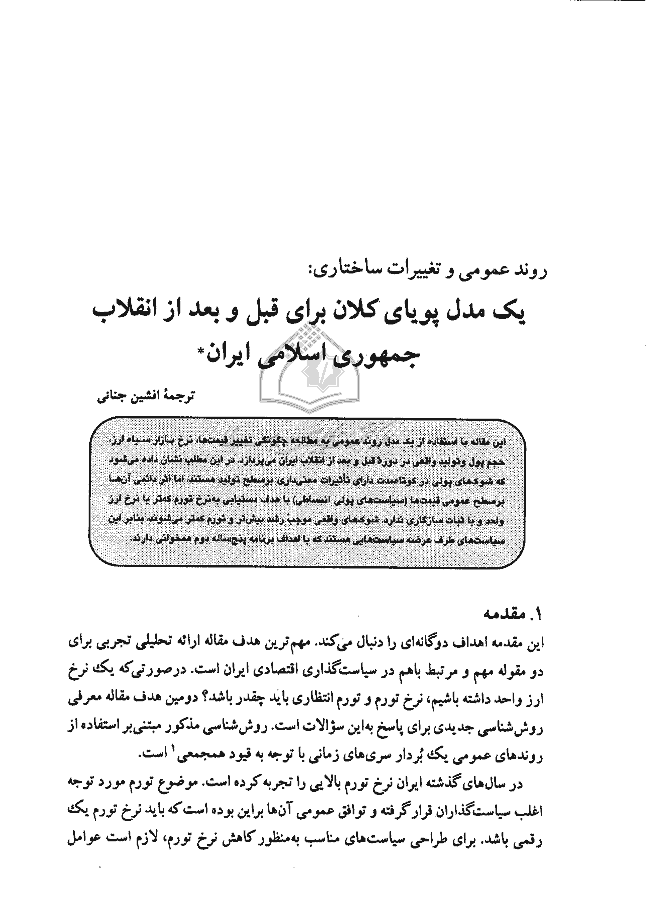 روند عمومی و تغییرات ساختاری:
یک مدل پویای کلان برای قبل و بعد از انقلاب
جمهوری اسلامی ایران*
ترجمهٔ افشین جنانی
این مقاله با استفاده از یک مدل روند عمومی به مطالعه چگونگی تغییر قیمت‌ها، نرخ بازار سیاه ارز،
حجم پول و تولید واقعی در دورهٔ قبل و بعد از انقلاب ایران می‌پردازد. در این مطلب نشان داده می‌شود
که شوک‌های پولی در کوتاه‌مدت دارای تأثیرات معنی‌داری برسطح تولید هستند. اما اثر دائمی آن‌ها
برسطح عمومی قیمت‌ها (سیاست‌های پولی انبساطی) با هدف دستیابی به‌نرخ تورم کمتر یا نرخ ارز
واحد و با ثبات سازگاری ندارد. شوک‌های واقعی موجب رشد بیش‌تر و تورم کمتر می‌شوند. بنابر این
سیاست‌های طرف عرضه سیاست‌هایی هستند که با اهداف برنامه پنج‌ساله دوم همخوانی دارند.
۱. مقدمه
این مقدمه اهداف دوگانه‌ای را دنبال می‌کند. مهم‌ترین هدف مقاله ارائه تحلیلی تجربی برای
دو مقوله مهم و مرتبط باهم در سیاست‌گذاری اقتصادی ایران است. درصورتی‌که یک نرخ
ارز واحد داشته باشیم، نرخ تورم و تورم انتظاری باید چقدر باشد؟ دومین هدف مقاله معرفی
روش‌شناسی جدیدی برای پاسخ به‌این سؤالات است. روش‌شناسی مذکور مبتنی‌بر استفاده از
روندهای عمومی یک بُردار سری‌های زمانی با توجه به قیود همجمعی۱ است.
در سال‌های گذشته ایران نرخ تورم بالایی را تجربه کرده است. موضوع تورم مورد توجه
اغلب سیاست‌گذاران قرار گرفته و توافق عمومی آن‌ها براین بوده است که باید نرخ تورم یک
رقمی باشد. برای طراحی سیاست‌های مناسب به‌منظور کاهش نرخ تورم، لازم است عوامل